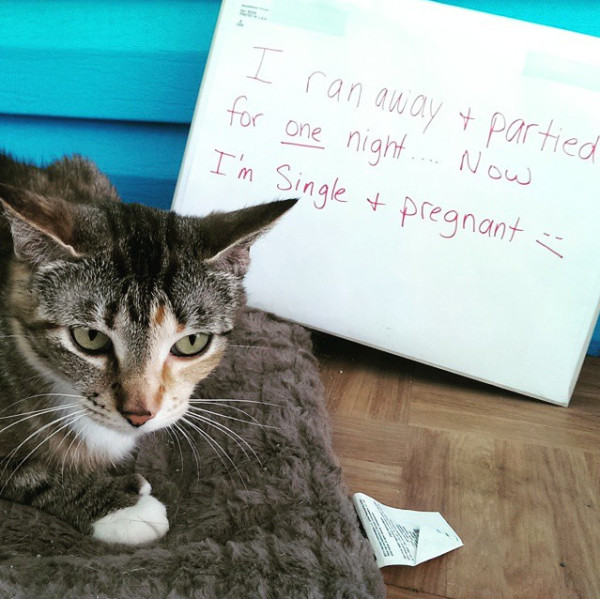 I ran away + partied
for one night.... Now
I'm Single + pregnant =